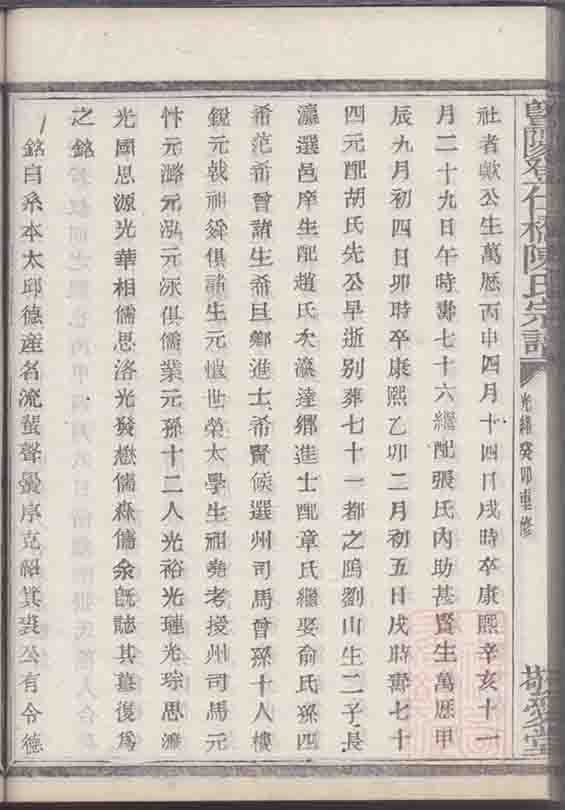 暨陽登仕橋陳氏宗譜
光緒癸卯重修
敬愛堂
社者歟公生萬曆丙申四月十四日戌時卒康熙辛亥十一
月二十九日午時壽七十六繼配張氏內助甚賢生萬曆甲
辰九月初四日卯時卒康熙乙卯二月初五日戌時壽七十
四元配胡氏先公早逝別葬七十一都之鴎劉山生二子長
瀛選邑庠生配趙氏次瀛達鄉進士配章氏繼娶俞氏孫四
希范希曾諸生希旦鄉進士希賢候選州司馬曾孫十人樓
銳元戟祖舜俱諸生元愷世榮太學生祖堯考授州司馬元
忭元潞元泓元泳俱儒業元孫十二人光裕光璉光琮思濂
光國思源光華相儒思洛光發懋儒森儒余旣誌其墓復爲
之銘
銘白系本太邱德產名流蜚聲黌序克紹箕裘公有令德